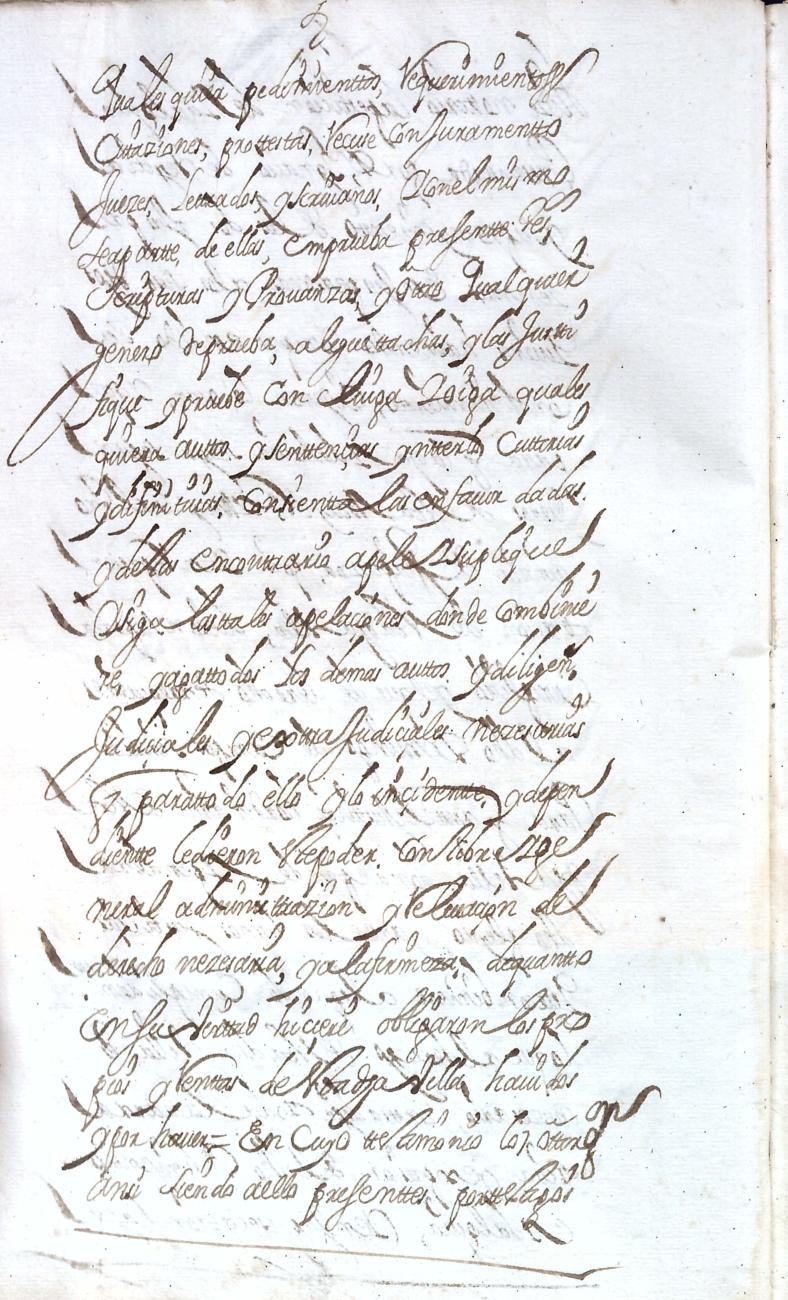 Qualesquiera pedimenttos, Requerimientos
Cittaziones, prottestas, Recuse Con Juramentto
Juezes, Lettrados, y scrivanos, Con el mismo
se apartte, de ellas, em prueba presentte ttes,
scripturas y Provanzas, y ottro Qualquier
genero de prueba, alegue ttachas, y las Justti
fique y pruebe Con Siga Y oiga quales
quiera auttos y senttencias ynterlo Cuttorias
y difinitivas, Consientta las en favor dadas
y de las en conttrario apele Y suplique
Y siga las ttales apelaciones donde combinie
re, y aga ttodos los demas auttos y diligen.s
Judiciales y exttra Judiciales nezesarias
q paratto do ello y lo incidentte, y depen
dientte le dieron este poder. Con libre Y ge
neral administtrazion y Relevacion de
derecho nezesaria, y a la firmeza, de quantto
En su virttud hiciere obligaron los pro
pios y Renttas de estta dha Villa havidos
y por haver = En Cuyo ttesttimonio lo ottorg.on
ansi siendo a ello presenttes por ttesttigos